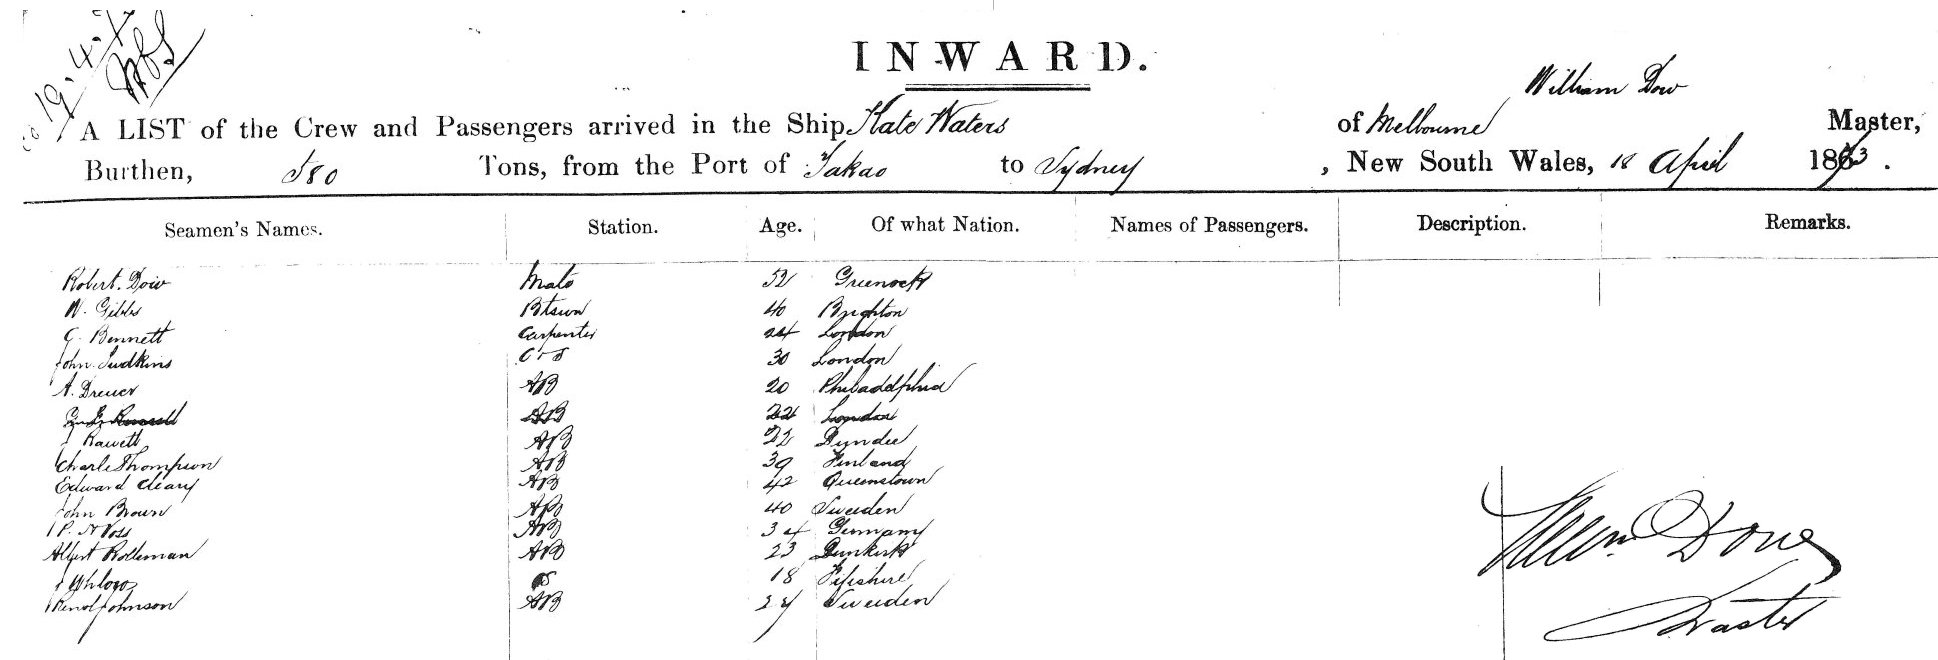 19.4.7
INWARD.
William Dow
A LIST of the Crew and Passengers arrived in the Ship Kate Waters of Melbourne Master,
Burthen, 580 Tons, from the Port of Takao to Sydney, New South Wales, 18 April 1873.
Seamen's Names. Station. Age. Of what Nation. Names of Passengers. Description. Remarks.
Robert Dow Mate 52 Greenock
W. Gibbs Btswn 40 Brighton
G. Bennett Carpenter 24 London
John Judkins C & S 30 London
A. Dreuer AB 20 Philadelphia
AB 22 London
J Rawett AB 22 Dundee
Charle Thompson AB 39 Finland
Edward Cleary AB 42 Queenstown
John Brown AB 40 Sweeden
P. N Voss AB 34 Germany
Albert Rolleman AB 23 Dunkirk
J OS 18 Fifeshire
Johnson AB 24 Sweeden
Willm Dow
Master